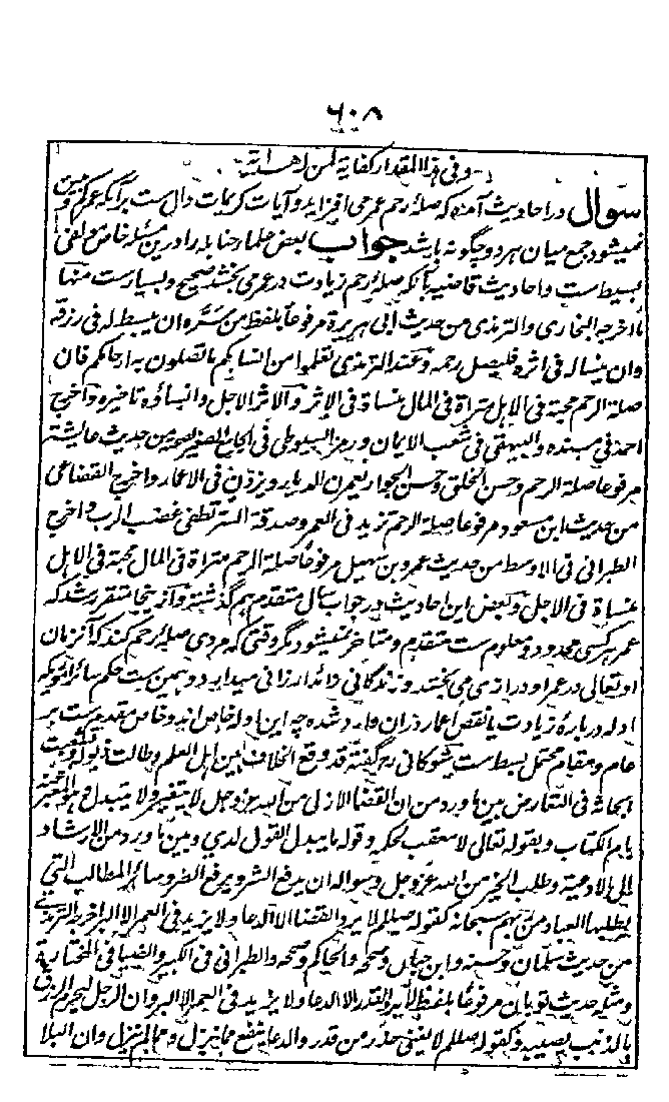 ٦٠٨
وفی هذا المقدار کفایة لمن له هدایة
سوال در احادیث آمده که صلهٔ رحم عمر می افزاید و آیات کریمات دال ست بر آنکه عمر کم و بیش
نمیشود جمع میان هر دو چگونه باشد جواب بعض علما رضا بدار درین مسئله خاص مؤلفی
بسیط ست و احادیث قاضیه بآنکه صلهٔ رحم زیادت در عمر می بخشد صحیح و بسیار ست منها
ما اخرجه البخاری والترمذی من حدیث ابی هریرة مرفوعاً بلفظ من سره ان یبسط له فی رزقه
وان ینسأ له فی اثره فلیصل رحمه وعند الترمذی تعلموا من انسابکم ما تصلون به ارحامکم فان
صلة الرحم محبة فی الاهل مثراة فی المال منساة فی الاثر والاثر الاجل وانساؤه تاخیره واخرج
احمد فی مسنده والبیهقی فی شعب الایمان ورمز السیوطی فی الجامع الصغیر لصحته من حدیث عایشة
مرفوعا صلة الرحم وحسن الخلق وحسن الجوار یعمرن الدیار ویزدن فی الاعمار واخرج القضاعی
من حدیث ابن مسعود مرفوعا صلة الرحم تزید فی العمر وصدقة السر تطفی غضب الرب واخرج
الطبرانی فی الاوسط من حدیث عمرو بن سهیل مرفوعا صلة الرحم مثراة فی المال محبة فی الاهل
منساة فی الاجل وبعض این احادیث در جواب سوال متقدم هم گذشته و از ینجا متقرر شد که
عمر هر کسی محدود و معلوم ست متقدم و متاخر نمیشود مگر وقتی که مردی صلهٔ رحم کند که آنزمان
او تعالی در عمر او درازی می بخشد و زندگانی زائد ارزانی میدارد و همین ست حکم سائر انچه که
ادله در بارهٔ زیادت یا نقص اعمار دران وارد شده چه این ادله خاص اند و خاص مقدم ست بر
عام و مقام محتمل بسط ست شوکانی رح گفته قد وقع الخلاف بین اهل العلم وطالت ذیوله وتشعبت
ابحاثه فی التعارض بین ما ورد من ان القضا الازلی من الله عز وجل لا یتغیر ولا یتبدل وهو المعبر عنه
بام الکتاب وبقوله تعالی لا معقب لحکمه وقوله ما یبدل القول لدی وبین ما ورد من الارشاد
الی الادعیة وطلب الخیر من الله عز وجل وسواله ان یدفع الشر ویرفع الضر وسائر المطالب التی
یطلبها العباد من ربهم سبحانه کقوله صللم لا یرد القضا الا الدعا ولا یزید فی العمر الا البر اخرجه الترمذی
من حدیث سلمان وحسنه وابن حبان وصححه والحاکم وصححه والطبرانی فی الکبیر والضیا فی المختارة
ومثله حدیث ثوبان مرفوعا بلفظ لا یرد القدر الا الدعا ولا یزید فی العمر الا البر وان الرجل لیحرم الرزق
بالذنب یصیبه وکقوله صللم لا یغنی حذر من قدر والدعا ینفع مما نزل ومما لم ینزل وان البلا